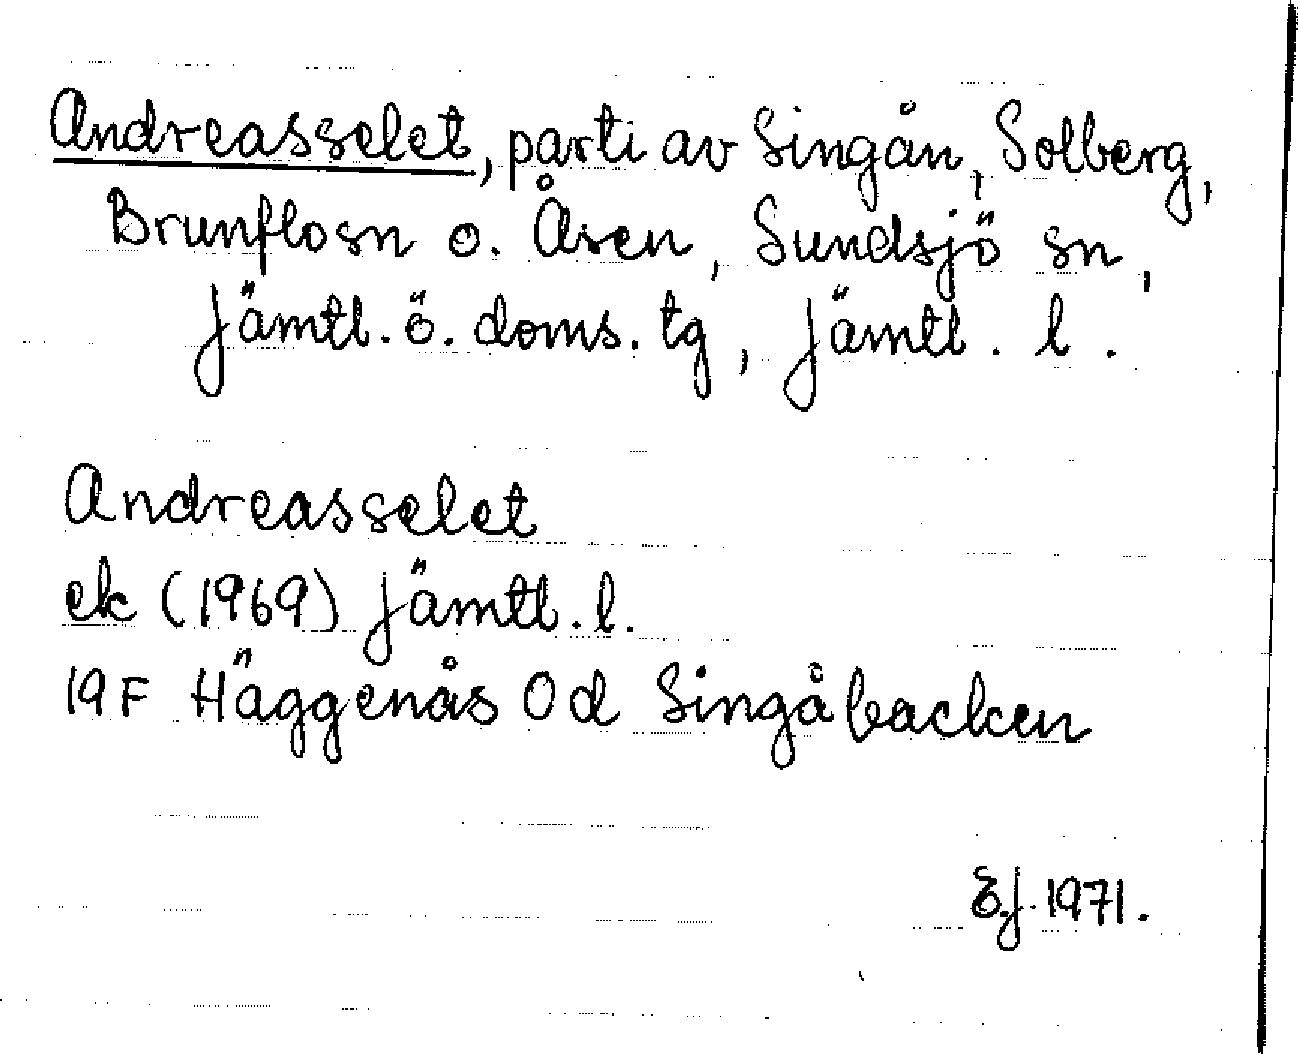 Andreasselet, parti av Singån, Solberg,
Brunflosn o. Åsen, Sundsjö sn,
Jämtl. ö. doms. tg, Jämtl. l.
Andreasselet
ek (1969) Jämtl. l.
19F Häggenås 0d Singåbacken
E.J. 1971.